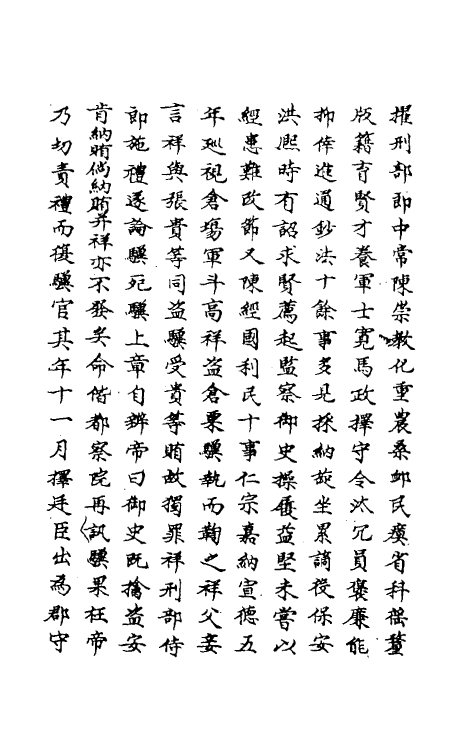 擢刑部郎中常陳崇教化重農桑邺民瘼省科徭釐
版籍育賢才養軍士寛馬政擇守令汰冗員褒廉能
抑倖進通鈔法十餘事多見採納旋坐累謫役保安
洪熈時有詔求賢薦起監察御史操履益堅未嘗以
經患難改節又陳經國利民十事仁宗嘉納宣德五
年廵視倉塲軍斗高祥盗倉粟驥執而鞫之祥父妾
言祥與張貴等同盗驥受貴等賄故獨罪祥刑部侍
郎施禮遂論驥死驥上章自辨帝曰御史既擒盗安
肯納賄倘納賄并祥亦不發矣命偕都察院再訊驥果枉帝
乃切責禮而復驥官其年十一月擇廷臣出為郡守